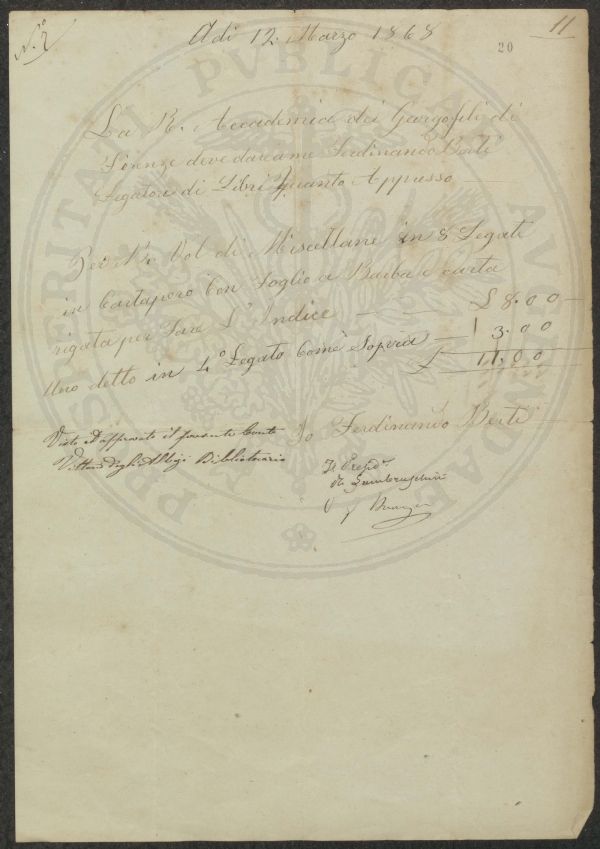 N.º 2
Adi 12. Marzo 1868
11
20
La R. Accademia dei Gergofili di
Firenze deve dare a me Ferdinando Berti
Legatore di Libri quanto Appresso
Per N.º Vol. di Miscellane in 8 Legati
in Cartapero Con Foglio a Barba e carta
rigata per fare L'Indice £ 8.00
Uno detto in 4º Legato Come Sopra 3.00
£ 11.00
Visto ed approvato il presente Conto
Vittorio degli Albizi Bibliotecario
Io Ferdinando Berti
Il Presid.e
R. Lambruschini
PROSPERITATI PVBLICAE AVGENDAE